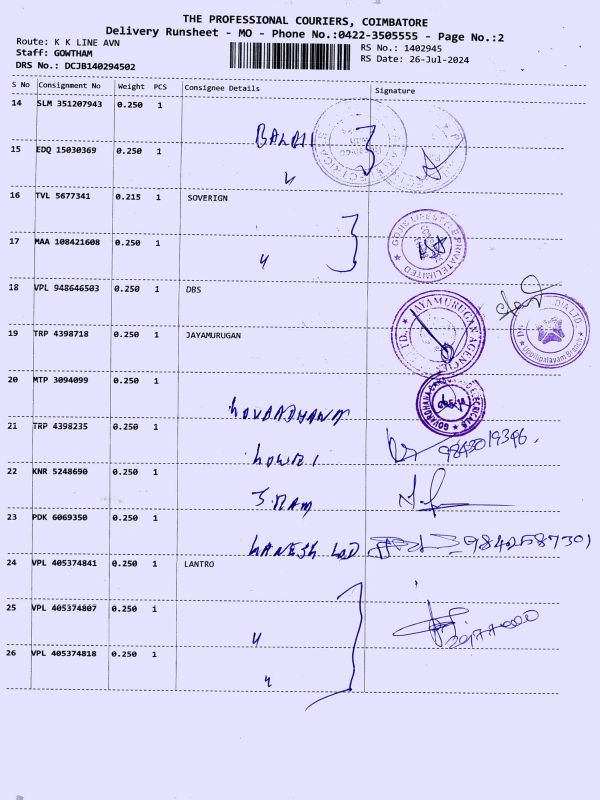 THE PROFESSIONAL COURIERS, COIMBATORE
Delivery Runsheet - MO - Phone No.:0422-3505555 - Page No.:2
Route: K K LINE AVN
RS No.: 1402945
Staff: GOWTHAM
RS Date: 26-Jul-2024
DRS No.: DCJB140294502
S No Consignment No Weight PCS Consignee Details Signature
14 SLM 351207943 0.250 1
BALAJI
15 EDQ 15030369 0.250 1
16 TVL 5677341 0.215 1 SOVERIGN
17 MAA 108421608 0.250 1
PRIVATE LIMITED
18 VPL 948646503 0.250 1 DBS
19 TRP 4398718 0.250 1 JAYAMURUGAN
JAYAMURUGAN AGENCIES
Uppilipalayam Branch
20 MTP 3094099 0.250 1
21 TRP 4398235 0.250 1
GOWRI 9843019346
22 KNR 5248690 0.250 1
23 PDK 6069350 0.250 1
GANESH 9842587301
24 VPL 405374841 0.250 1 LANTRO
25 VPL 405374807 0.250 1
26 VPL 405374818 0.250 1